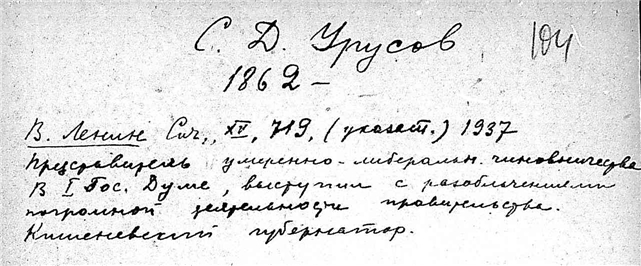 С. Д. Урусов 104
1862 –
В. Ленин Соч., XV, 719, (указат.) 1937
Представитель умеренно-либеральн. чиновничества
в I Гос. Думе, выступил с разоблачениями
погромной деятельности правительства.
Кишеневский губернатор.